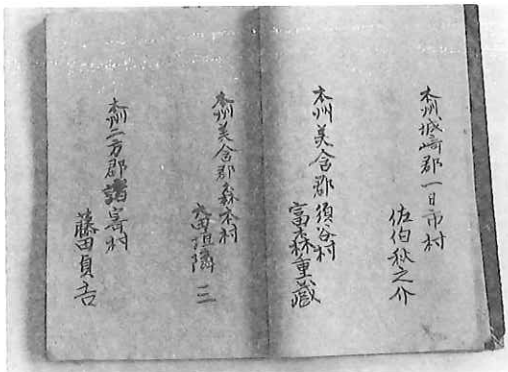 本州城崎郡一日市村
佐伯秋之介
本州美含郡須谷村
富森重蔵
本州美含郡森本村
太田垣隣三
本州二方郡諸寄村
藤田貞吉